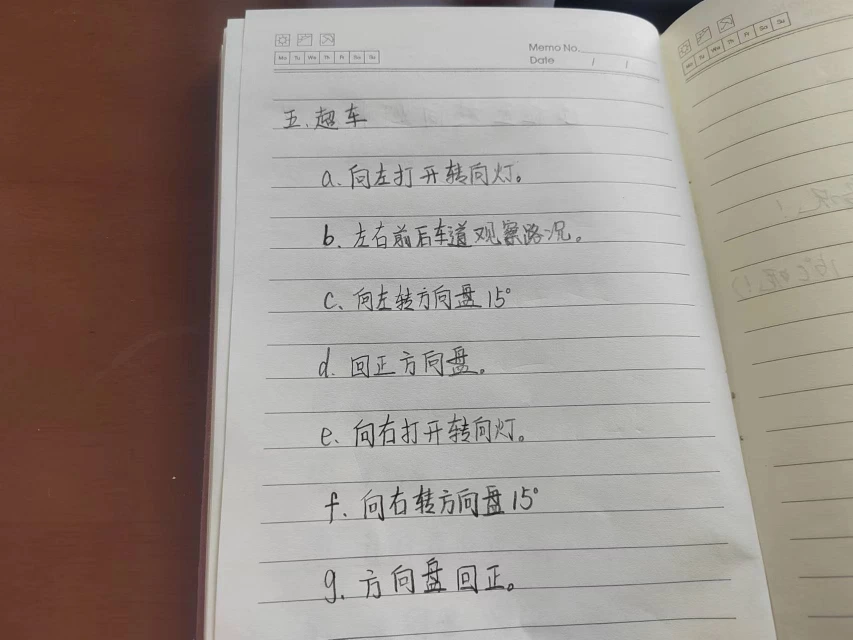 Memo No.
Mo Tu We Th Fr Sa Su
Date / /
五、超车
a. 向左打开转向灯。
b. 左右前后车道观察路况。
c. 向左转方向盘15°
d. 回正方向盘。
e. 向右打开转向灯。
f. 向右转方向盘15°
g. 方向盘回正。
Mo Tu We Th Fr Sa Su